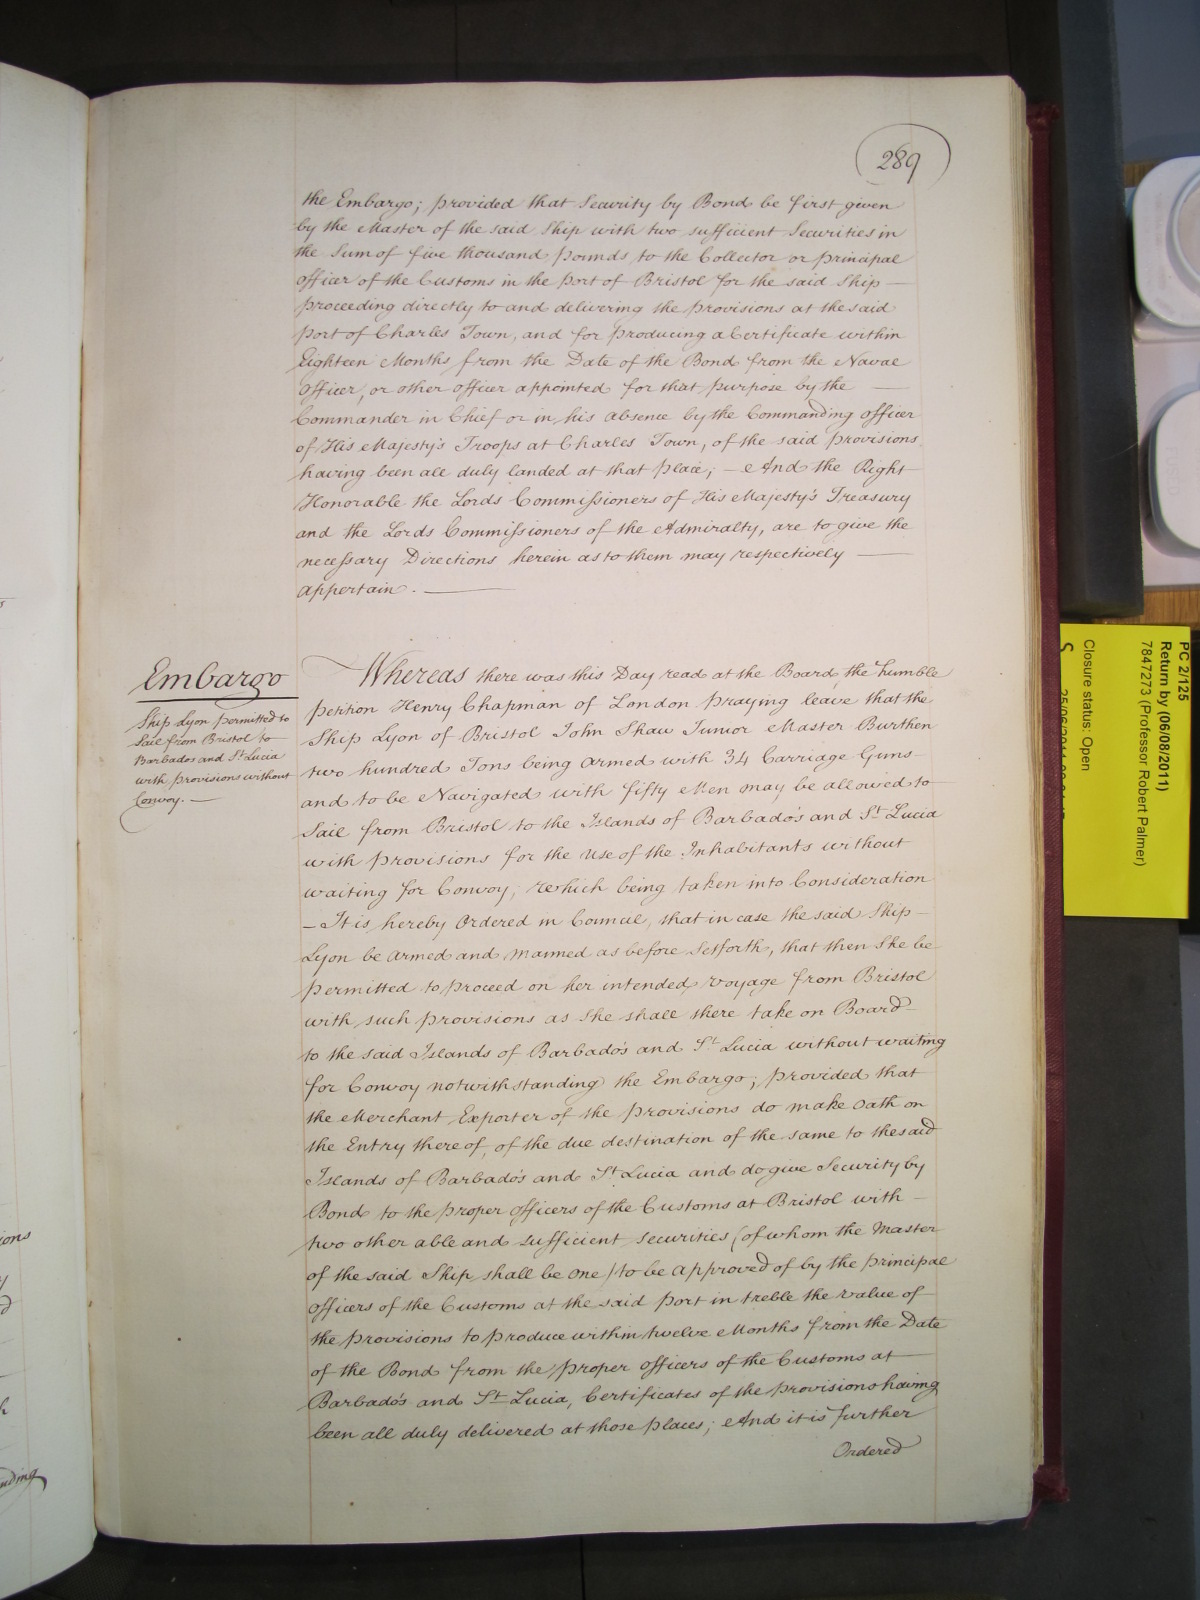 289
the Embargo; provided that Security by Bond be first given
by the Master of the said Ship with two sufficient Securities in
the Sum of five thousand pounds to the Collector or principal
Officer of the Customs in the Port of Bristol for the said Ship —
proceeding directly to and delivering the provisions at the said
Port of Charles Town, and for producing a Certificate within
Eighteen Months from the Date of the Bond from the Naval
Officer, or other officer appointed for that purpose by the —
Commander in Chief or in his absence by the Commanding Officer
of His Majesty's Troops at Charles Town, of the said provisions
having been all duly landed at that place; — And the Right
Honorable the Lords Commissioners of His Majesty's Treasury
and the Lords Commissioners of the Admiralty, are to give the
necessary Directions herein as to them may respectively —
appertain. —
Embargo
Ship Lyon permitted to
Sail from Bristol to
Barbados and St. Lucia
with provisions without
Convoy. —
Whereas there was this Day read at the Board the humble
petition Henry Chapman of London praying leave that the
Ship Lyon of Bristol John Shaw Junior Master Burthen
two hundred Tons being armed with 34 Carriage Guns
and to be Navigated with fifty Men may be allowed to
Sail from Bristol to the Islands of Barbado's and St. Lucia
with provisions for the use of the Inhabitants without
waiting for Convoy; which being taken into Consideration
— It is hereby Ordered in Council, that in case the said Ship —
Lyon be armed and manned as before Setforth, that then She be
permitted to proceed on her intended voyage from Bristol
with such provisions as She shall there take on Board —
to the said Islands of Barbado's and St. Lucia without waiting
for Convoy notwithstanding the Embargo; provided that
the Merchant Exporter of the provisions do make Oath on
the Entry thereof, of the due destination of the same to the said
Islands of Barbado's and St. Lucia and do give Security by
Bond to the proper Officers of the Customs at Bristol with —
two other able and sufficient securities (of whom the Master
of the said Ship shall be one) to be approved of by the principal
Officers of the Customs at the said port in treble the value of
the provisions to produce within twelve Months from the Date
of the Bond from the proper Officers of the Customs at —
Barbado's and St. Lucia, Certificates of the provisions having
been all duly delivered at those places; And it is further
Ordered
PC 2/125
Return by (06/08/2011)
7847273 (Professor Robert Palmer)
Closure status: Open